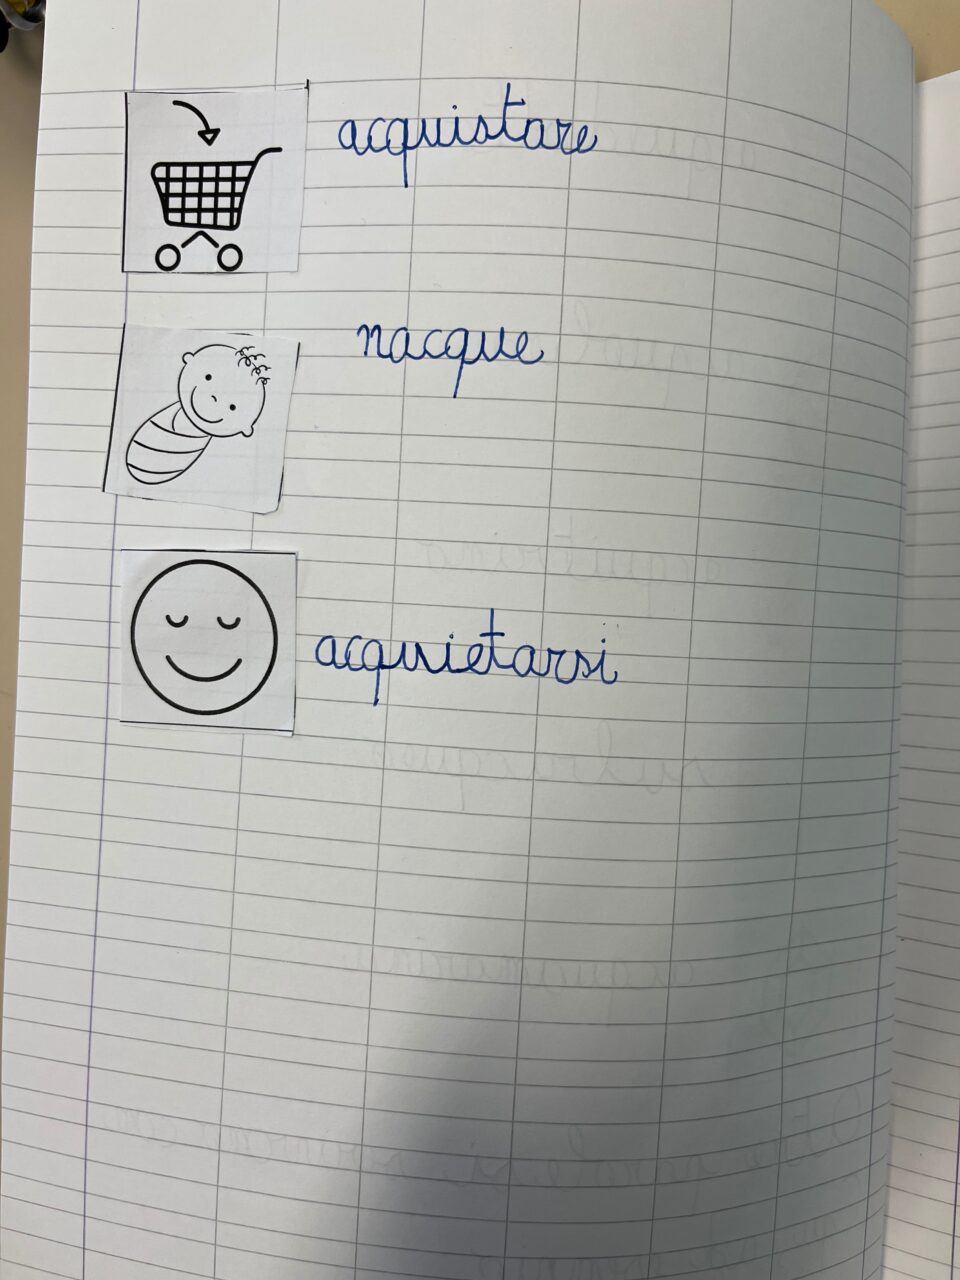 acquistare
nacque
acquietarsi